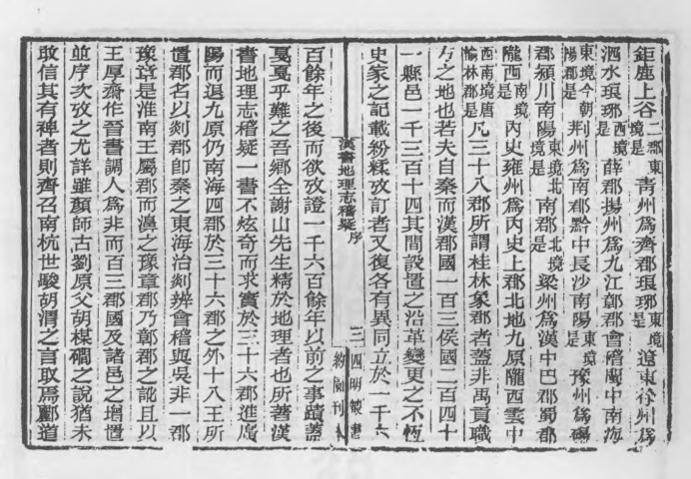 鉅鹿上谷二郡東境是青州爲齊郡琅琊東境是遼東徐州爲
泗水琅琊西境是薛郡揚州爲九江鄣郡會稽閩中南海
東境今朝陽郡是荆州爲南郡黔中長沙南陽東境是豫州爲碭
郡潁川南陽東北境是南郡北境是梁州爲漢中巴郡蜀郡
隴西南境是內史雍州爲內史上郡北地九原隴西雲中
西南境唐榆林郡是凡三十八郡所謂桂林象郡者蓋非禹貢職
方之地也若夫自秦而漢郡國一百三侯國二百四十
一縣邑一千三百十四其間設置之沿革變更之不恆
史家之記載紛糅攷訂者又復各有異同立於一千六
漢書地理志稽疑 序
三
四明叢書
約園刊本
百餘年之後而欲攷證一千六百餘年以前之事蹟蓋
戛戛乎難之吾鄉全謝山先生精於地理者也所著漢
書地理志稽疑一書不炫奇而求實於三十六郡進廣
陽而退九原仍南海四郡於三十六郡之外十八王所
置郡名以郯郡卽秦之東海治郯辨會稽與吳非一郡
豫章是淮南王屬郡而濞之豫章郡乃鄣郡之訛且以
王厚齋作晉書調人爲非而百三郡國及諸邑之增置
並序次攷之尤詳雖顏師古劉原父胡楳磵之說猶未
敢信其有裨者則齊召南杭世駿胡渭之言取爲酈道